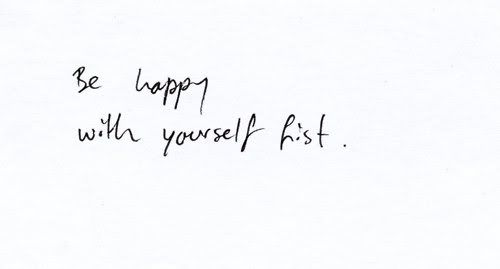 Be happy
with yourself fist.